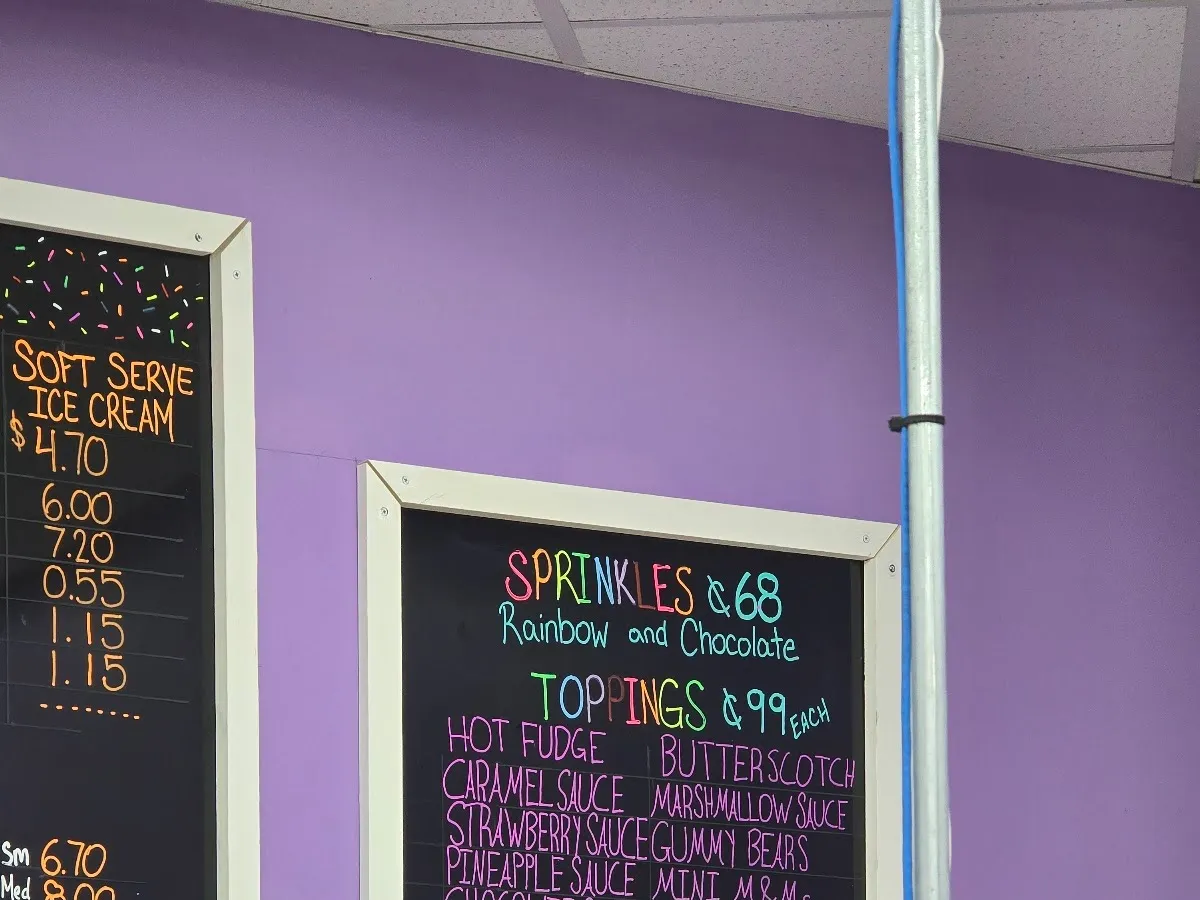 SOFT SERVE
ICE CREAM
$ 4.70
6.00
7.20
0.55
1.15
1.15
Sm 6.70
Med 8.00
SPRINKLES ¢68
Rainbow and Chocolate
TOPPINGS ¢99 EACH
HOT FUDGE BUTTERSCOTCH
CARAMEL SAUCE MARSHMALLOW SAUCE
STRAWBERRY SAUCE GUMMY BEARS
PINEAPPLE SAUCE MINI M&Ms